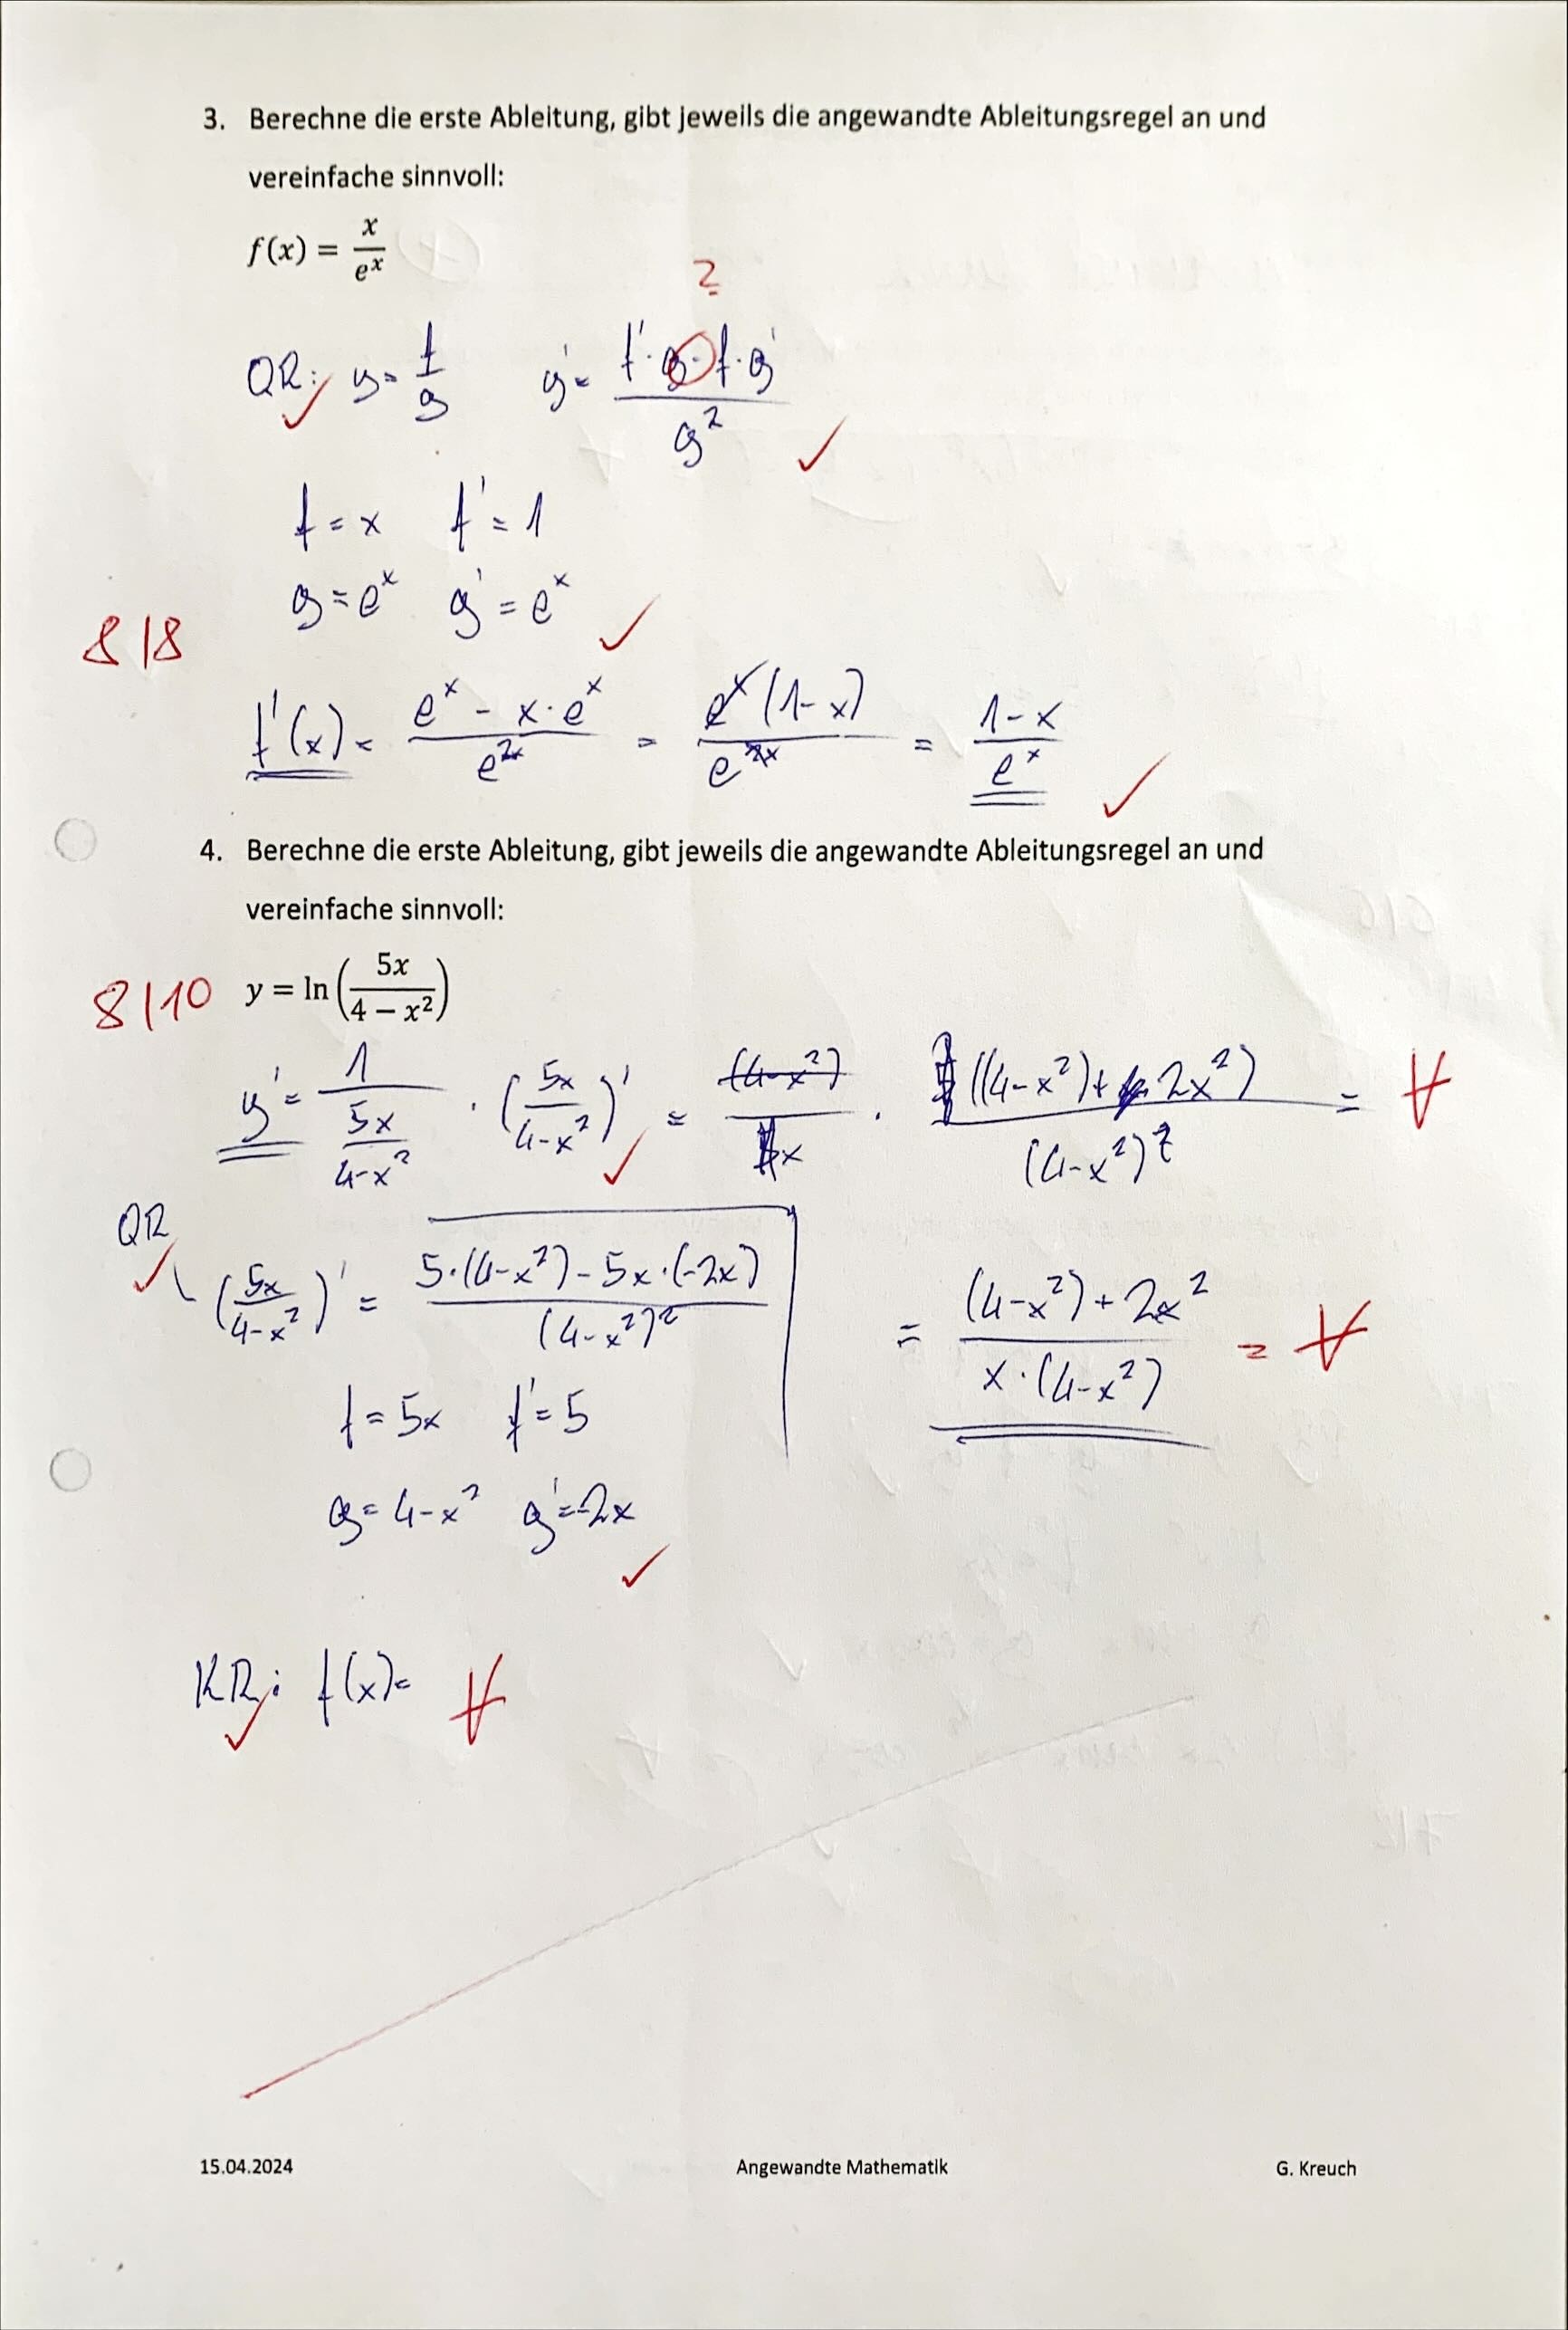 3. Berechne die erste Ableitung, gibt jeweils die angewandte Ableitungsregel an und
vereinfache sinnvoll:
f(x) = x/e^x
?
QR: y = f/g y' = (f'·g - f·g')/g^2
f = x f' = 1
g = e^x g' = e^x
8/8
f'(x) = (e^x - x·e^x)/e^2x = e^x(1-x)/e^2x = (1-x)/e^x
4. Berechne die erste Ableitung, gibt jeweils die angewandte Ableitungsregel an und
vereinfache sinnvoll:
8/10 y = ln(5x/(4 − x²))
y' = 1/(5x/(4-x²)) · (5x/(4-x²))' = (4-x²)/x · ((4-x²)+2x²)/(4-x²)² =
QR
(5x/(4-x²))' = (5·(4-x²)-5x·(-2x))/(4-x²)²
= ((4-x²)+2x²)/(x·(4-x²)) =
f = 5x f' = 5
g = 4-x² g' = -2x
KR: f(x) =
15.04.2024 Angewandte Mathematik G. Kreuch